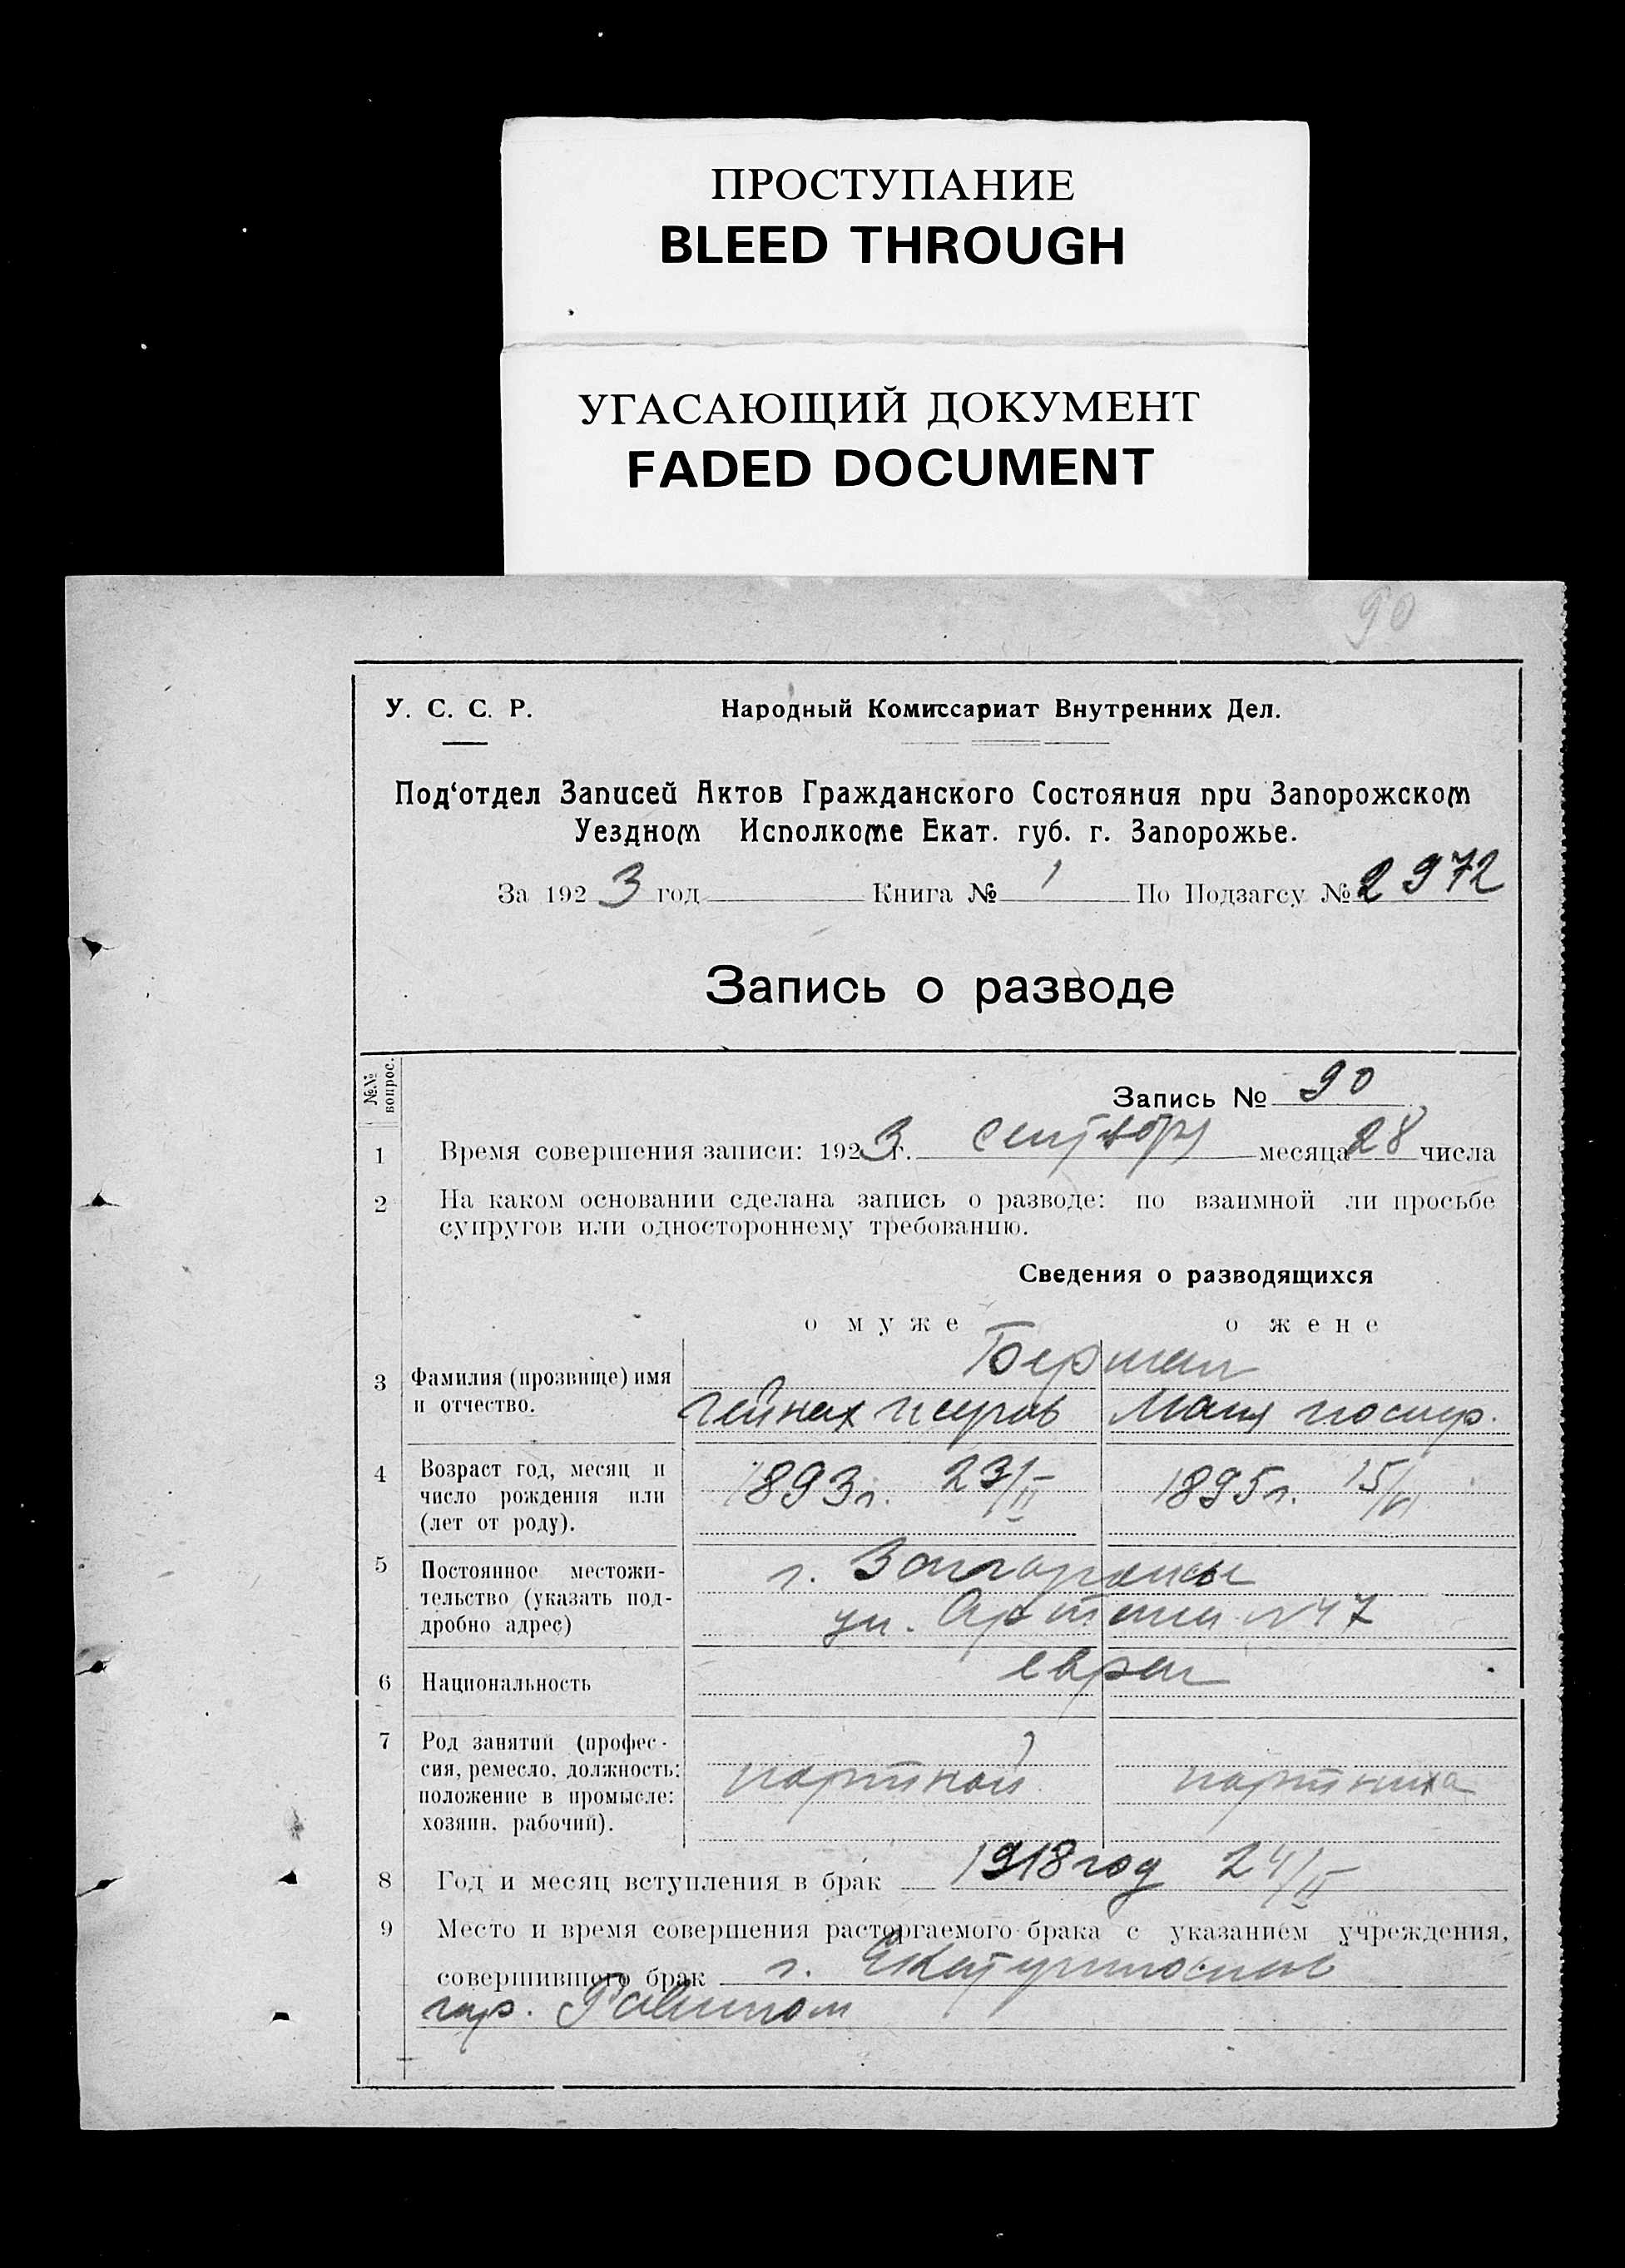 ПРОСТУПАНИЕ
BLEED THROUGH
УГАСАЮЩИЙ ДОКУМЕНТ
FADED DOCUMENT
90
У. С. С. Р. Народный Комиссариат Внутренних Дел.
Под‘отдел Записей Актов Гражданского Состояния при Запорожском
Уездном Исполкоме Екат. губ. г. Запорожье.
За 1923 год Книга № 1 По Подзагсу № 2972
Запись о разводе
№№ вопрос.
Запись № 90
1 Время совершения записи: 1923 г. сентября месяца 28 числа
2 На каком основании сделана запись о разводе: по взаимной ли просьбе
супругов или одностороннему требованию.
Сведения о разводящихся
о муже о жене
Берман
3 Фамилия (прозвище) имя
и отчество.
Гейнах Маня
4 Возраст год, месяц и
число рождения или
(лет от роду).
1893г. 23/II 1895г. 15/VI
5 Постоянное местожи-
тельство (указать под-
дробно адрес)
г. Запорожье
ул. Артема № 47
6 Национальность евреи
7 Род занятий (профес-
сия, ремесло, должность:
положение в промысле:
хозяин, рабочий).
портной портниха
8 Год и месяц вступления в брак 1918 год 24/II
9 Место и время совершения расторгаемого брака с указанием учреждения,
совершившего брак г. Екатеринослав
гор. Равином